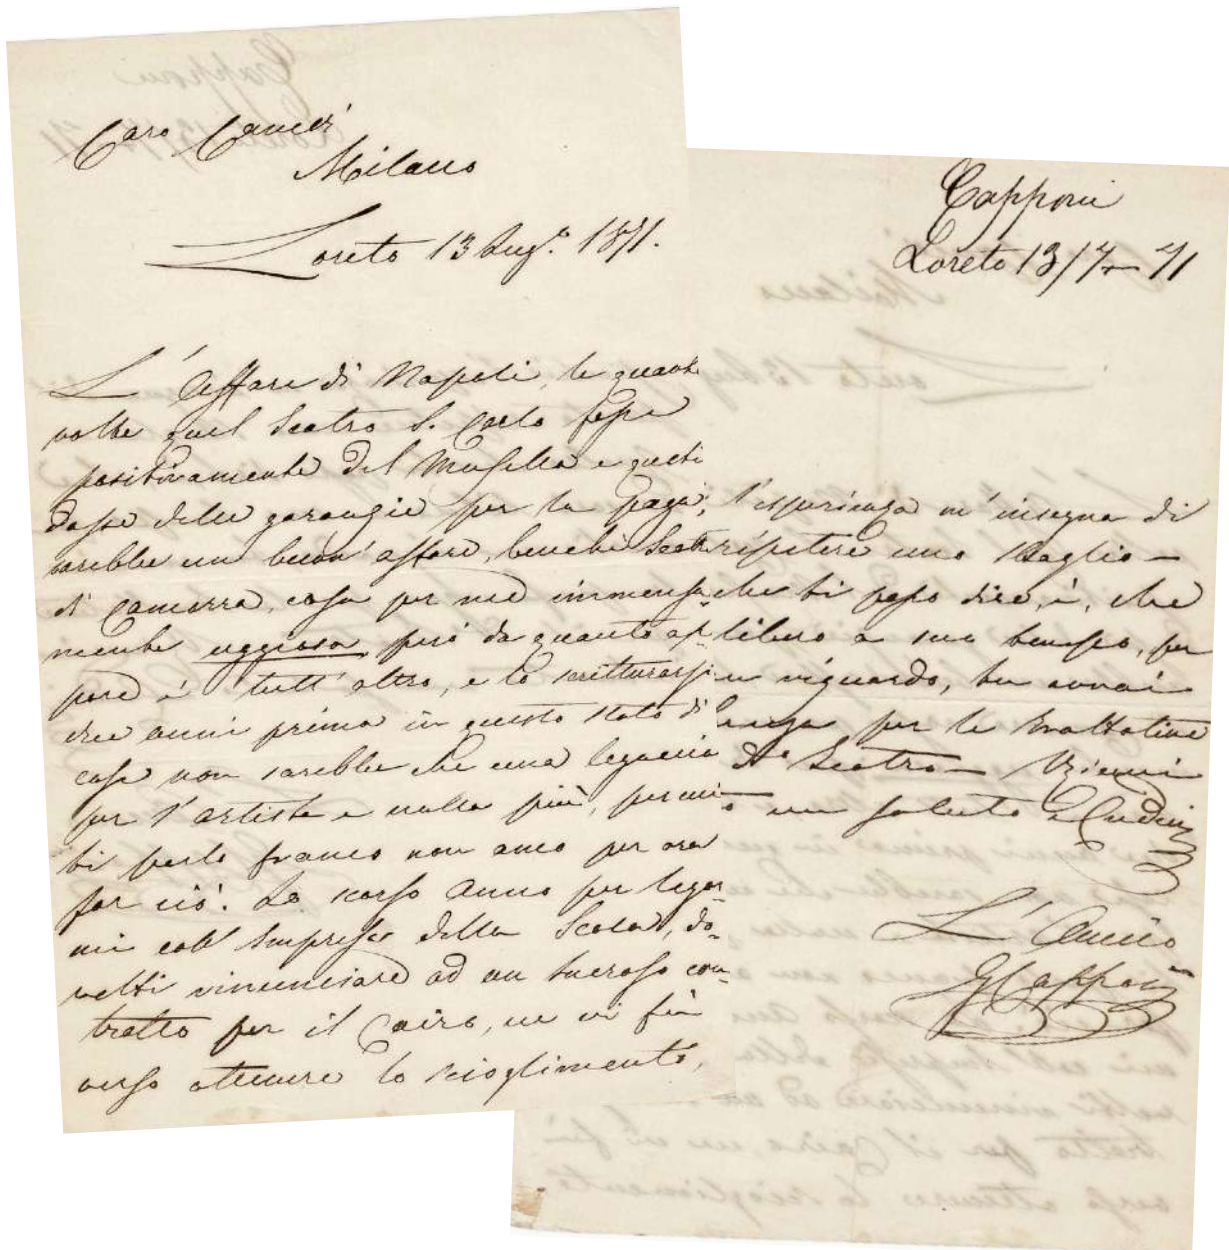 Caro
Milano
Loreto 13 Lug.° 1871.
L'affare di Napoli, le quante
volte quel Teatro S. Carlo fosse
positivamente del Musella e questi
dasse delle garanzie per la paga,
sarebbe un buon' affare, benchè Teatro
di Camorra, cosa per me immensa-
mente uggiosa, però da quanto ap-
pare è tutt' altro, e lo scritturarsi
due anni prima in questo stato di
cose non sarebbe che una legaccia
per l'artista e nulla più, perciò
ti parlo franco non amo per ora
far ciò. Lo scorso anno per legar
mi coll' Impresa della Scala, do-
vetti rinunciare ad un lucroso con-
tratto per il Cairo, ne vi fu
verso ottenere lo scioglimento,
Capponi
Loreto 13/7 - 71
l'esperienza m'insegna di
ripetere uno sbaglio -
che ti posso dire, è, che
libero a suo tempo, per
riguardo, tu avrai
per le trattative
Teatro -
un saluto
L' Amico
G Capponi